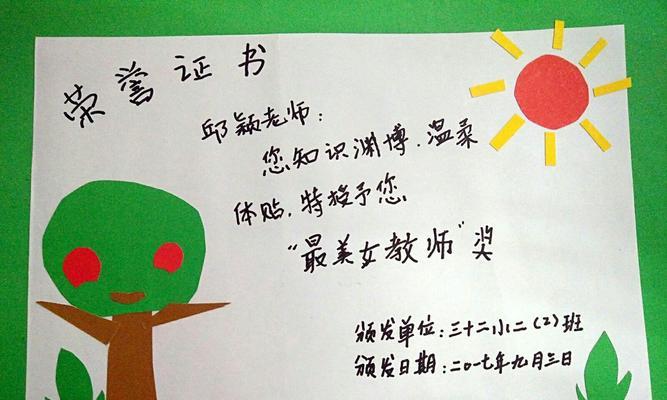 荣誉证书
邱颖老师：
您知识渊博．温柔
体贴．特授予您
“最美女教师”奖
颁发单位：三十二小二（2）班
颁发日期：二〇一七年九月三日